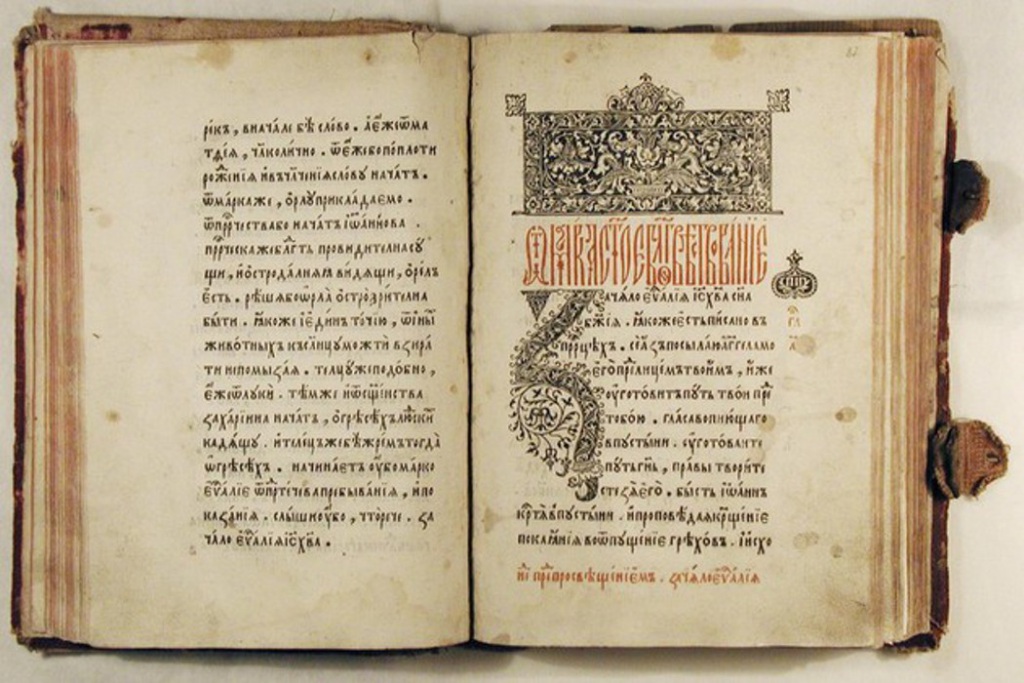 рекъ, вначале бѣ слово. а еже ѿ ма
тѳея, чл҃колично. ѿ еже бо поплоти
рожения и въчл҃чения слову начатъ.
ѿ марка же, орлу прикладаемо.
ѿ пррⷪ҇чества бо начатъ іѡаннова.
пррⷪ҇ческа же бл҃гⷣть провидителна су
щи, и острѣ далняꙗ видящи, орелъ
есть. рѣша бо орла острозрителна
быти. ꙗкоже і единъ точію, ѿ инѣⷯ
животныхъ къ слн҃цу можти взира
ти непомызая. телцу же подобно,
еже ѿ луки. тѣмже и ѿ сщ҃енства
захарінна начатъ, о грѣсѣхъ людскиⷯ
кадящу. и телецъ же бѣ жремъ тогда
ѡ грѣсѣхъ. начинаетъ оубо марко
еѵⷢ҇аліе ѿ прⷣтечева пребыванія, и по
казанія. слыши оубо, что рече. за
чало еѵⷢ҇алія іс҃ хв҃а.
ачало еѵⷢ҇алія іс҃ хв҃а сн҃а
бж҃ія. ꙗкоже есть писано въ
прⷪ҇рцѣхъ. се азъ посылаю агг҃ела мо
его пред лицемъ твоимъ, иже
оуготовитъ путь твои преⷣ
тобою. глас вопиющаго
в пустыни. оуготоваите
путь гн҃ь, правы творите
стезѧ его. бысть іѡаннъ
крⷭ҇тѧ в пустыни. и проповѣдая крⷳ҇щеніе
покаꙗнія во ѿпущеніе грѣховъ. и исхо
неⷣ преⷣ просвѣщеніемъ. зачяло еѵⷢ҇алія